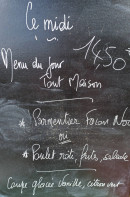 Ce midi
14,50€
Menu du jour
Tout Maison
* Parmentier
ou
* Poulet rôti, frites, salade
Coupe glacée vanille, citron vert